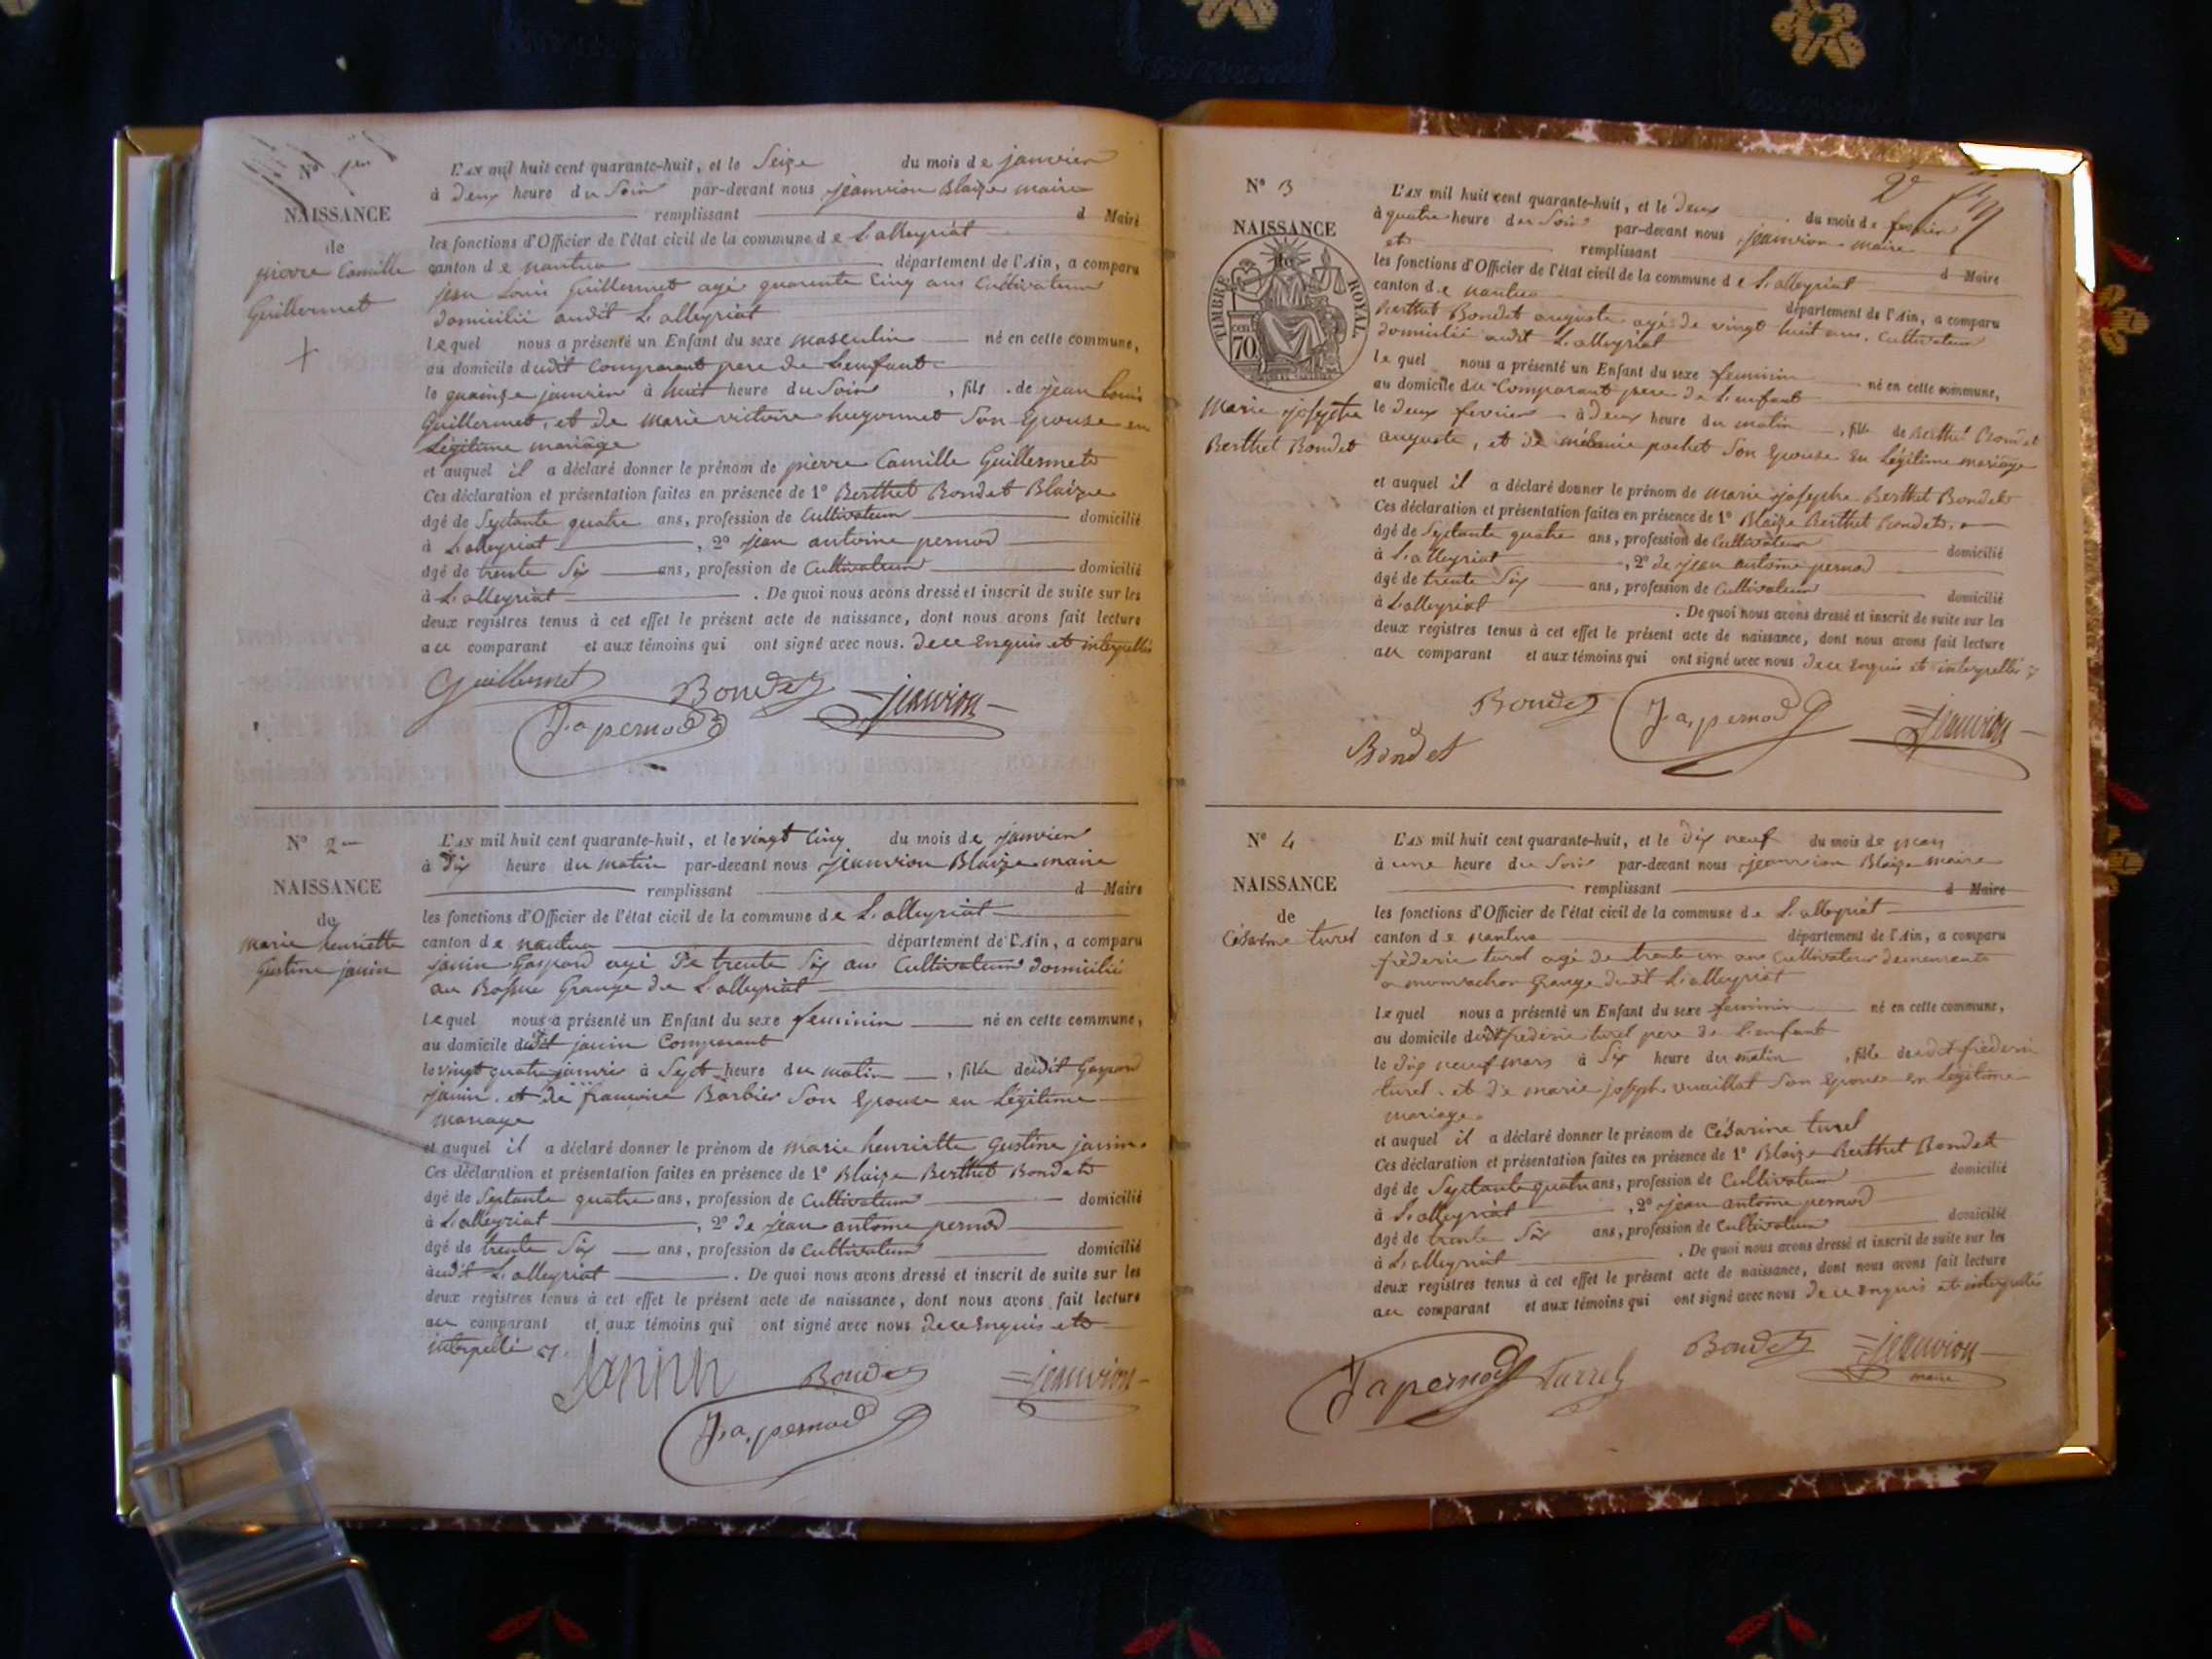 N° 1er
NAISSANCE
de
pierre Camille
Guillermet
L'AN mil huit cent quarante-huit, et le Seize du mois de janvier
à deux heure du Soir par-devant nous jeanvion Blaize maire
remplissant d Maire
les fonctions d'Officier de l'état civil de la commune de L'alleyriat
canton de nantua département de l'Ain, a comparu
jean Louis Guillermet agé quarente Cinq ans Cultivateur
domicilié audit L'alleyriat
lequel nous a présenté un Enfant du sexe masculin né en cette commune,
au domicile dudit Comparant pere de L'enfant
le quainze janvier à huit heure du Soir, fils de jean Louis
Guillermet, et de marie victoire hugonnet Son Epouse en
Légitime mariage
et auquel il a déclaré donner le prénom de pierre Camille Guillermet
Ces déclaration et présentation faites en présence de 1° Berthet Bondet Blaize
âgé de Septante quatre ans, profession de Cultivateur domicilié
à L'alleyriat, 2° jean antoine pernod
âgé de trente Six ans, profession de Cultivateur domicilié
à L'alleyriat. De quoi nous avons dressé et inscrit de suite sur les
deux registres tenus à cet effet le présent acte de naissance, dont nous avons fait lecture
au comparant et aux témoins qui ont signé avec nous. de ce Enquis et interpellés
Guillermet Bondet jeanvion
J. a pernod
N° 2me
NAISSANCE
de
marie henriette
Gustine janin
L'AN mil huit cent quarante-huit, et le vingt Cinq du mois de janvier
à Dix heure du matin par-devant nous jeanvion Blaize maire
remplissant d Maire
les fonctions d'Officier de l'état civil de la commune de L'alleyriat
canton de nantua département de l'Ain, a comparu
janin Gaspard agé De trente Six ans Cultivateur domicilié
au Grange de L'alleyriat
lequel nous a présenté un Enfant du sexe feminin né en cette commune,
au domicile dudit janin Comparant
le vingt quatre janvier à Sept heure du matin, fille dudit Gaspard
janin, et de françoise Barbier Son Epouse en Légitime
mariage
et auquel il a déclaré donner le prénom de marie henriette Gustine janin.
Ces déclaration et présentation faites en présence de 1° Blaize Berthet Bondet
âgé de Septante quatre ans, profession de Cultivateur domicilié
à L'alleyriat, 2° de jean antoine pernod
âgé de trente Six ans, profession de Cultivateur domicilié
audit L'alleyriat. De quoi nous avons dressé et inscrit de suite sur les
deux registres tenus à cet effet le présent acte de naissance, dont nous avons fait lecture
au comparant et aux témoins qui ont signé avec nous de ce Enquis et
interpellé
Janin Bondet jeanvion
J. a. pernod
N° 3
NAISSANCE
TIMBRE ROYAL
70
Marie josephte
Berthet Bondet
2e
L'AN mil huit cent quarante-huit, et le Deux du mois de fevrier
à quatre heure du Soir par-devant nous jeanvion maire
et remplissant d Maire
les fonctions d'Officier de l'état civil de la commune de L'alleyriat
canton de nantua département de l'Ain, a comparu
Berthet Bondet auguste agé de vingt huit ans, Cultivateur
domicilié audit L'alleyriat
lequel nous a présenté un Enfant du sexe feminin né en cette commune,
au domicile du Comparant pere de L'enfant
le deux fevrier à deux heure du matin, fille de Berthet Bondet
auguste, et de mélanie pochet Son Epouse en Légitime mariage
et auquel il a déclaré donner le prénom de marie josephe Berthet Bondet
Ces déclaration et présentation faites en présence de 1° Blaize Berthet Bondet
âgé de Septante quatre ans, profession de Cultivateur domicilié
à L'alleyriat, 2° de jean antoine pernod
âgé de trente Six ans, profession de Cultivateur domicilié
à L'alleyriat. De quoi nous avons dressé et inscrit de suite sur les
deux registres tenus à cet effet le présent acte de naissance, dont nous avons fait lecture
au comparant et aux témoins qui ont signé avec nous de ce Enquis et interpellés
Bondet J. a, pernod jeanvion
Bondet
N° 4
NAISSANCE
de
Césarine turel
L'AN mil huit cent quarante-huit, et le Dix neuf du mois de mars
à une heure du Soir par-devant nous jeanvion Blaize maire
remplissant d Maire
les fonctions d'Officier de l'état civil de la commune de L'alleyriat
canton de nantua département de l'Ain, a comparu
fréderic turel agé de trente un ans Cultivateur demeurante
a Grange dudit L'alleyriat
lequel nous a présenté un Enfant du sexe feminin né en cette commune,
au domicile dudit frederic turel pere de L'enfant
le Dix neuf mars à Six heure du matin, fille dudit fréderic
turel, et de marie joseph vuaillat Son Epouse en Légitime
mariage
et auquel il a déclaré donner le prénom de Césarine turel
Ces déclaration et présentation faites en présence de 1° Blaize Berthet Bondet
âgé de Septante quatre ans, profession de Cultivateur domicilié
à L'alleyriat, 2° jean antoine pernod
âgé de trente Six ans, profession de Cultivateur domicilié
à L'alleyriat. De quoi nous avons dressé et inscrit de suite sur les
deux registres tenus à cet effet le présent acte de naissance, dont nous avons fait lecture
au comparant et aux témoins qui ont signé avec nous de ce Enquis et interpellés
J a pernod Turrel Bondet jeanvion
maire